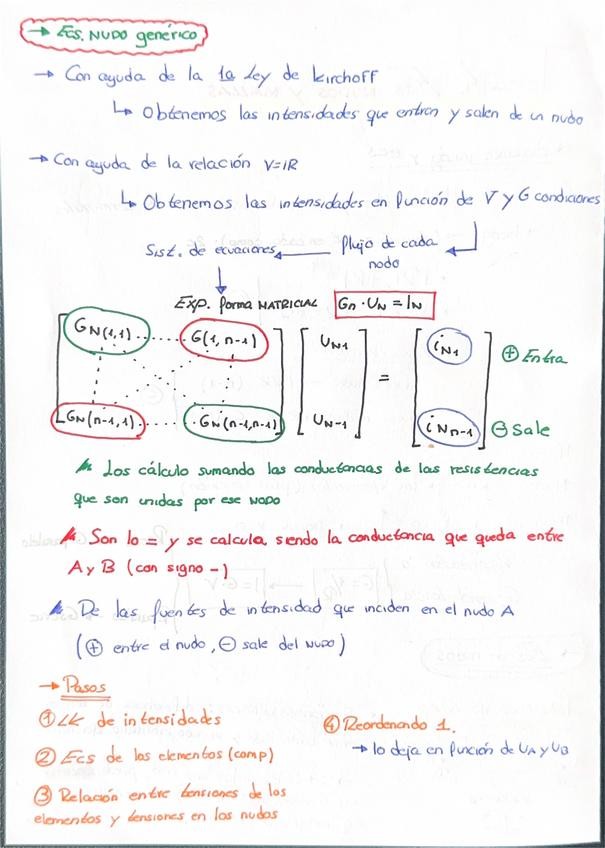 → Ecs. NUDO genérico
→ Con ayuda de la 1ª Ley de kirchoff
↳ Obtenemos las intensidades que entran y salen de un nudo
→ Con ayuda de la relación V=IR
↳ Obtenemos las intensidades en función de V y G condiciones
Sist. de ecuaciones ← Flujo de cada nodo
↓
Exp. forma MATRICIAL Gn · UN = IN
GN(1,1) ..... G(1, n-1) UN1 iN1 ⊕ Entra
=
GN(n-1,1) ..... GN(n-1,n-1) UN-1 iNn-1 ⊖ Sale
Los cálculo sumando las conductancias de las resistencias
que son unidas por ese NODO
Son lo = y se calcula siendo la conductancia que queda entre
A y B (con signo -)
De las fuentes de intensidad que inciden en el nudo A
(⊕ entre el nudo, ⊖ sale del NUDO)
→ Pasos
① LK de intensidades
② Ecs de los elementos (comp)
③ Relación entre tensiones de los
elementos y tensiones en los nudos
④ Reordenando 1.
→ lo deja en función de UA y UB